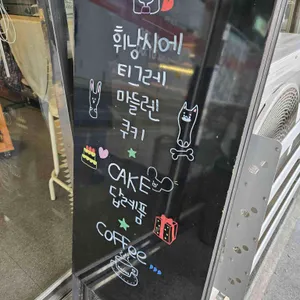 휘낭시에
티그레
마들렌
쿠키
CAKE
답례품
COFFEE